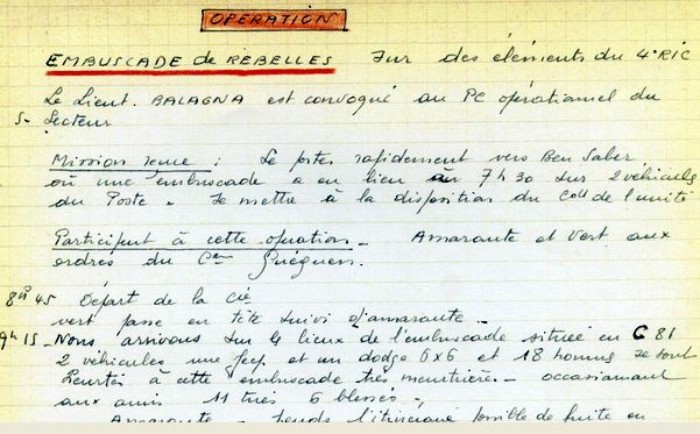 OPERATION
EMBUSCADE de REBELLES Sur des éléments du 4°RIC
Le Lieut. BALAGNA est convoqué au PC opérationnel du
S- Secteur
Mission reçue : Se porter rapidement vers Ben Saber
où une embuscade a eu lieu à 7h30 sur 2 véhicules
du Poste - Se mettre à la disposition du Cdt de l'unité
Participent à cette opération - Amarante et Vert aux
ordres du Cne Guéguen.
8H45 Départ de la Cie
vert passe en tête suivi d'amarante -
9h15 - Nous arrivons sur les lieux de l'embuscade située en C 81
2 véhicules une jeep et un dodge 6x6 et 18 hommes se sont
heurtés à cette embuscade très meurtrière - occasionnant
aux amis 11 tués 6 blessés -
Amarante - l'itinéraire possible de fuite en